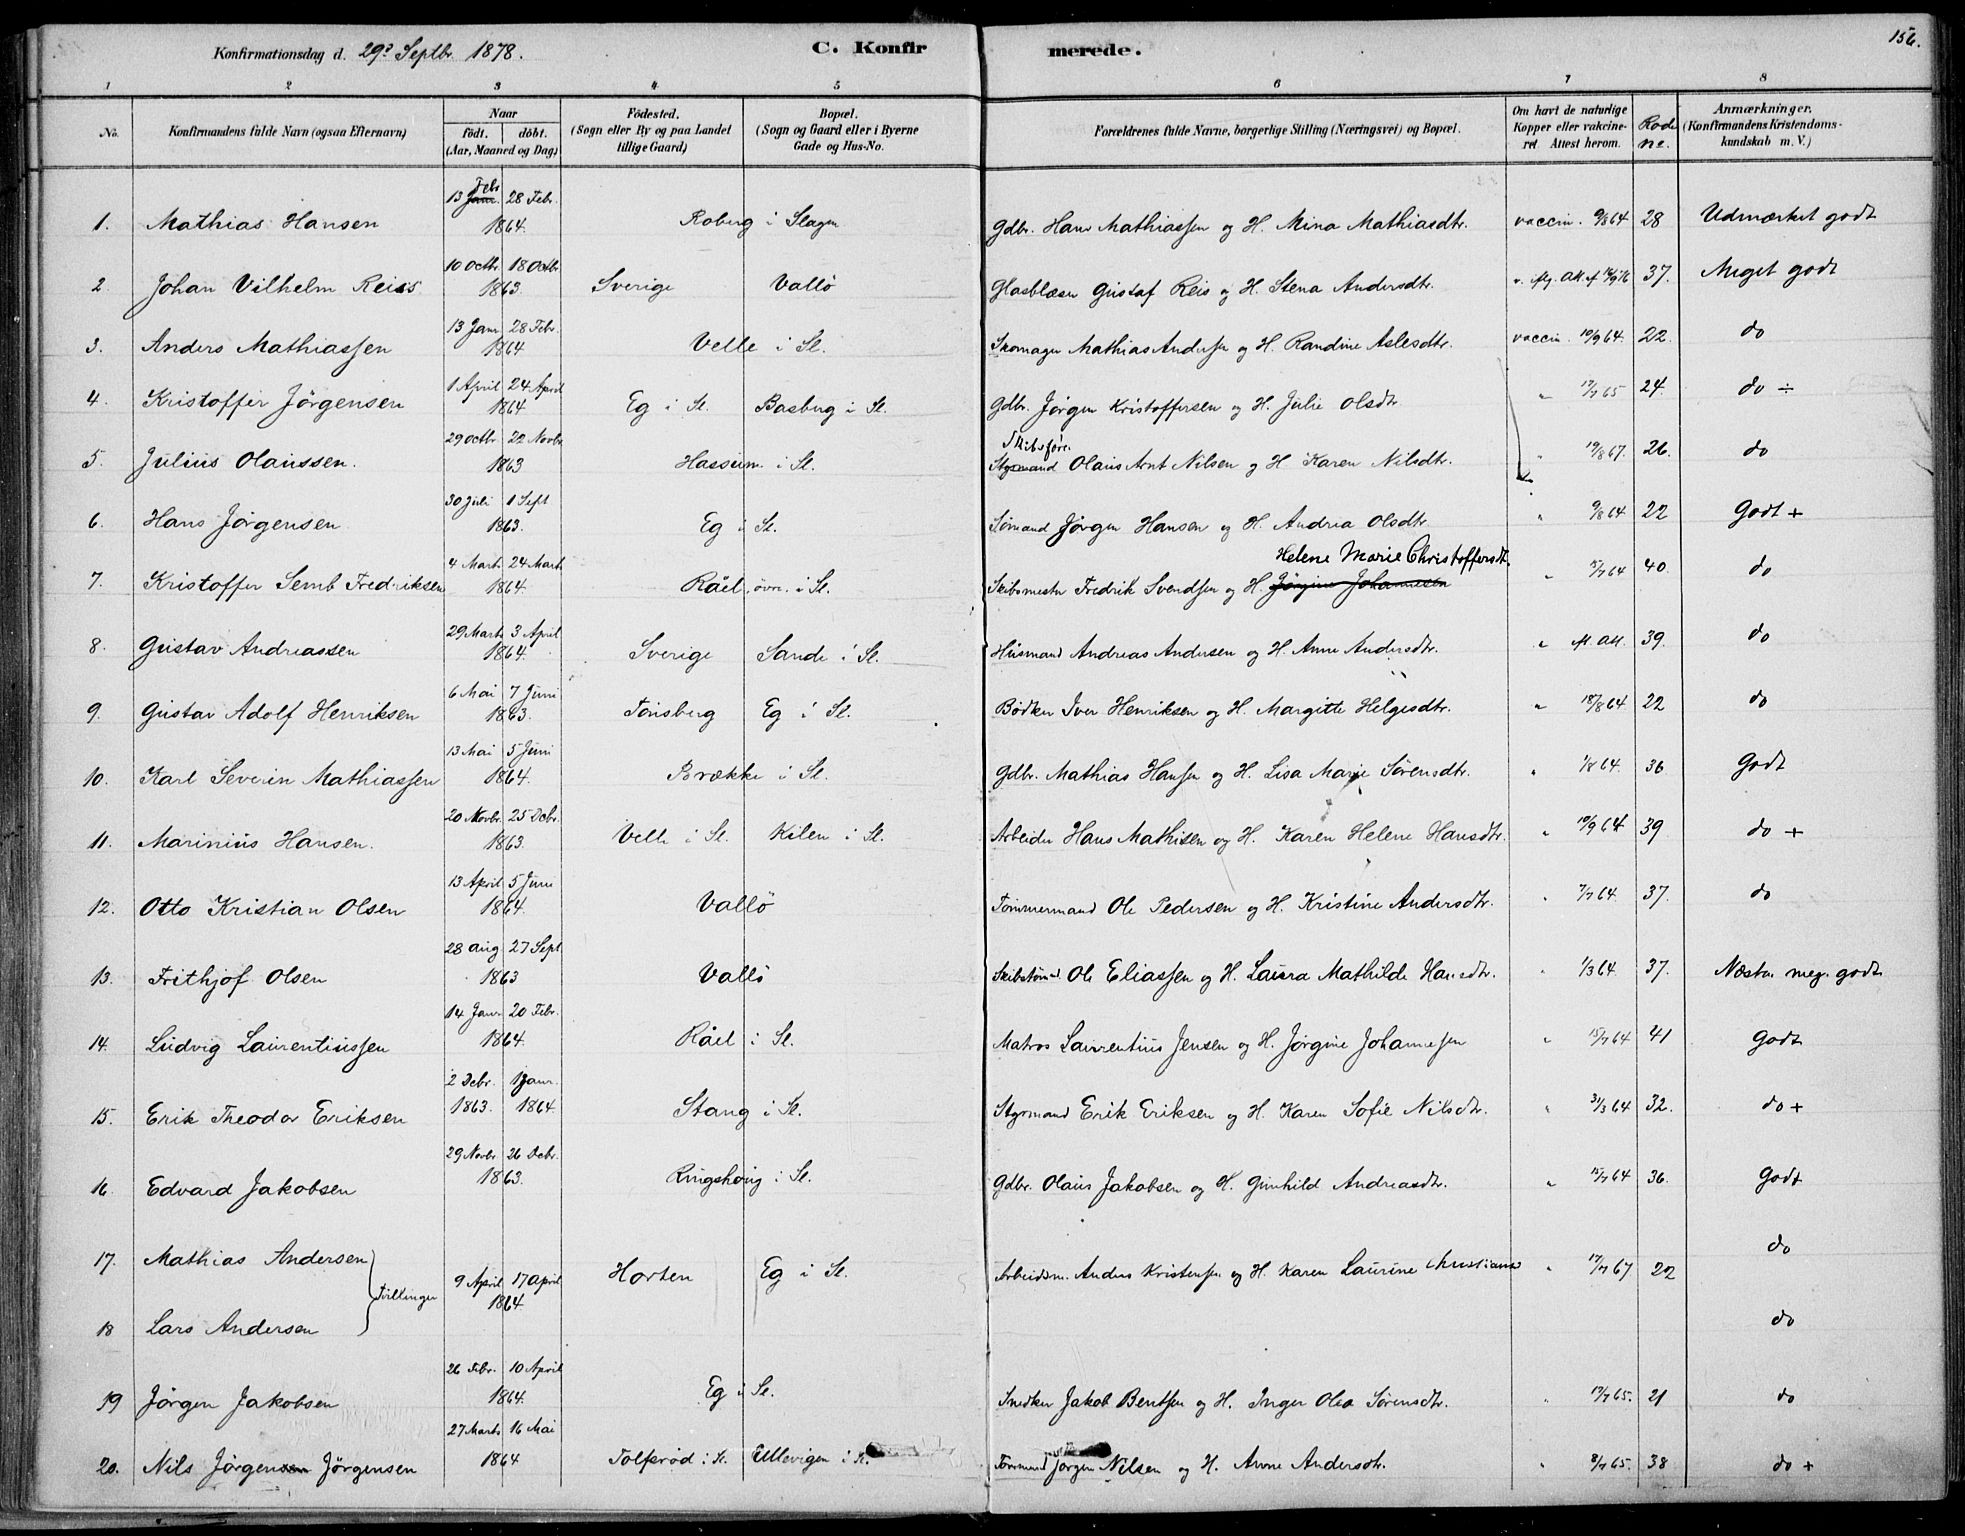 156.
Konfirmationsdag d. 29? Septbr 1878. C. Konfirmerede.
1 2 3 4 5 6 7 8
No. Konfirmandens fulde Navn (ogsaa Efternavn) Naar født. døbt. (Aar, Maaned og Dag) Fødested. (Sogn eller By og paa Landet tillige Gaard) Bopæl. (Sogn og Gaard eller i Byerne Gade og Hus-No. Forældrenes fulde Navne, borgerlige Stilling (Næringsvei) og Bopæl. Om havt de naturlige Kopper eller vakcineret. Attest herom. Rode ne. Anmærkninger. (Konfirmandens Kristendomskundskab m. V.)
1. Mathias Hansen 13 Janr. Febr 28 Febr. 1864. Roberg i Slagen Gdbr. Hans Mathiassen og H. Mina Mathiasdtr. vaccin. 9/8 64 28 Udmærket godt
2 Johan Vilhelm Reiss 10 Octbr. 18 Octbr. 1863. Sverige Vallö Glasblæser Gustaf Reis og H. Stena Andersdtr. 37. Meget godt
3. Anders Mathiassen 13 Janr 28 Febr. 1864 Velle i Sl. Skomager Mathias Andersen og H. Randine Aslesdtr. vaccin. 10/9 64. 22. do
4. Kristoffer Jörgensen 1 April 24 April 1864 Eg i Sl. Basberg i Sl. Gdbr. Jörgen Kristoffersen og H. Julie Olsdtr " 17/7 65 24. do ÷
5. Julius Olaussen. 29 octbr 22 Novbr. 1863 Hassum i Sl. Styrmand Skibsføre. Olaus Arnt Nilsen og H Karen Nilsdtr. " 19/8 67. 26. do
6. Hans Jørgensen 30 Juli 1 Sept 1863. Eg i Sl. Sømand Jørgen Hansen og H. Andrea Olsdtr. " 9/8 64 22 Godt +
7. Kristoffer Semb Fredriksen 4 Marts 24 Marts 1864. Råel, övre. i Sl. Skibsmester Fredrik Svendsen og H. Jørgine Johannesen Helene Marie Christoffersdt. " 15/7 64 40. do
8. Gustav Andreassen 29 Marts 3 April 1864. Sverige Sande i Sl. Husmand Andreas Andersen og H. Anne Andersdtr. " fl. Att. 39. do
9. Gustav Adolf Henriksen 6 Mai 7 Juni 1863. Tönsberg Eg i Sl. Bødker Iver Henriksen og H. Margitte Helgesdtr. " 18/8 64 22 do
10. Karl Severin Mathiassen 13 Mai 5 Juni 1864. Brække i Sl. Gdbr. Mathias Hansen og H. Lisa Marie Sörensdtr. " 1/8 64. 36 Godt
11. Marinius Hansen. 20 Novbr. 25 Debr. 1863. Velle i Sl. Kilen i Sl. Arbeider Hans Mathisen og H. Karen Helene Hansdtr. " 10/9 64 39 do +
12. Otto Kristian Olsen 13 April 5 Juni 1864. Vallö Tømmermand Ole Pedersen og H. Kristine Andersdtr. " 7/7 64. 37. do
13. Frithjof Olsen 28 aug 27 Sept 1863 Vallö Ole Eliassen og H. Laura Mathilde Hansdtr. " 1/3 64 37. Næsten meg. godt
14. Ludvig Laurentiussen 14 Janr 20 Febr. 1864. Råel i Sl. Matros Laurentius Jensen og H. Jørgine Johannesen " 15/7 64 41 Godt
15. Erik Theodor Eriksen 2 Debr. 1 Janr. 1863. 1864. Stang i Sl. Styrmand Erik Eriksen og H. Karen Sofie Nilsdtr. " 31/3 64 32. do +
16. Edvard Jakobsen 29 Novbr 26 Debr. 1863. Ringshoug i Sl. Gdbr. Olaus Jakobsen og H. Gunhild Andreasdtr. " 15/7 64 36. Godt
17. Mathias Andersen Tvillinger 9 April 17 april 1864. Horten Eg i Sl. Arbeidsm. Anders Kristensen og H. Karen Laurine Christians " 17/7 67 22 do
18 Lars Andersen do
19 Jørgen Jakobsen 26 Febr. 10 April 1864. Eg i Sl. Snedker Jakob Bentsen og H. Inger Olea Sørensdtr. " 17/7 65. 21 do
20. Nils Jørgensen Jörgensen 27 Marts 16 Mai 1864 Tolfsrød i Sl. Ellevigen i Sl. Jørgen Nilsen og H. Anne Andersdtr. " 8/7 65. 38 do +